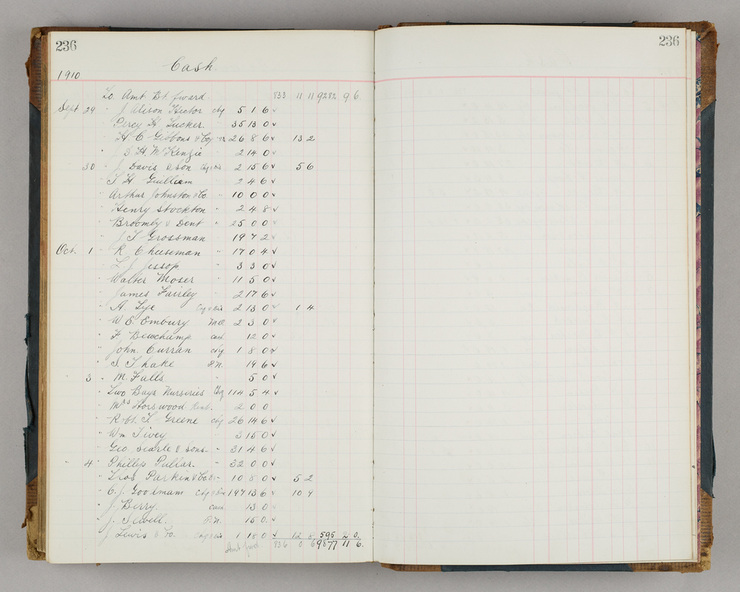 236
236
Cash.
1910
To Amt Bt forward 11 11 9282 9 6
Sept. 24 Hector chq 5 1 6
Percy H. Tucker 35 13 0
H. C. Gibbons & Co 26 8 6 13 2
J. H. McKenzie 2 14 0
30 J. Davis & Son 2 15 6 5 6
T. H. Guilliam 2 4 6
Arthur Johnston & Co 10 0 0
Henry Stockton 2 4 8
Broomby & Dent 25 00
J. T. Grossman 19 7 2
Oct. 1 R. Cheeseman 17 0 4
J. Jessop 3 3 0
Walter Moser 11 5 0
James Farrley 2 17 6
A. Tye 2 13 0 1 4
W. E. Embury M.O. 2 3 0
F. Beauchamp cash 12 0
John Curran chq 1 8 0
S. Thake P.N. 19 6
3 M. Falls 5 0
Two Bays Nurseries Chq 114 5 4
Mrs Horswood 2 0 0
Robt. T. Greene chq 26 14 6
Wm Tivey 3 15 0
Geo. Searle & Sons 31 4 6
4 Phillip Pullar 32 0 0
Thos Parkin & Co 10 8 0 5 2
C. J. Goodman 197 13 6 10 4
J. Berry cash 13 0
J. Sewell P.N. 15 0
J. Lewis & Co. 1 18 0 12 595 2 0
9877 11 6